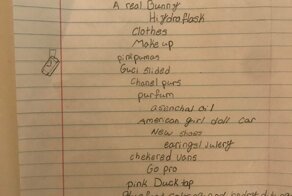 A real Bunny
Hidroflask
Clothes
Makeup
pinkpumas
Guci slides
Chanel purs
purfum
asenchal oil
American girl doll car
New shoes
earings/julery
chekered vans
Go pro
pink Duck tap